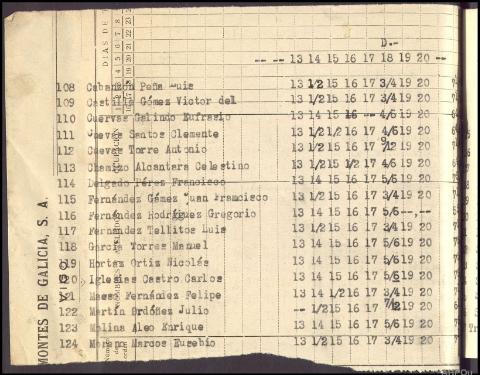 D.-
-- -- 13 14 15 16 17 18 19 20 --
108 Cabanzón Peña Luis 13 1/2 15 16 17 3/4 19 20
109 Castilla Gómez Victor del 13 1/2 15 16 17 3/4 19 20
110 Cuervas Galindo Eufrasio 13 14 15 16 -- 4/6 19 20
111 Santos Clemente 13 1/2 1/2 16 17 4/6 19 20
112 Cuevas Torre Antonio 13 1/2 15 16 17 19 20
113 Chamizo Alcantara Celestino 13 1/2 15 1/2 17 4/6 19 20
114 Delgado Pérez Francisco 13 14 15 16 17 5/6 19 20
115 Fernández Gómez Juan Francisco 13 1/2 15 16 17 3/4 19 20
116 Fernández Rodríguez Gregorio 13 14 15 16 17 5/6 --,--
117 Fernández Tellitos Luis 13 1/2 15 16 17 3/4 19 20
118 García Torres Manuel 13 14 15 16 17 5/6 19 20
119 Hortaz Ortiz Nicolás 13 14 15 16 17 5/6 19 20
120 Iglesias Castro Carlos 13 14 15 16 17 5/6 19 20
121 Maeso Fernández Felipe 13 14 1/2 16 17 3/4 19 20
122 Martín Ordóñez Julio -- 1/2 15 16 17 19 20
123 Molina Aleo Enrique 13 14 15 16 17 5/6 19 20
124 Moreno Marcos Eusebio 13 1/2 15 16 17 3/4 19 20
MONTES DE GALICIA, S. A.
VIGO
DIAS DE